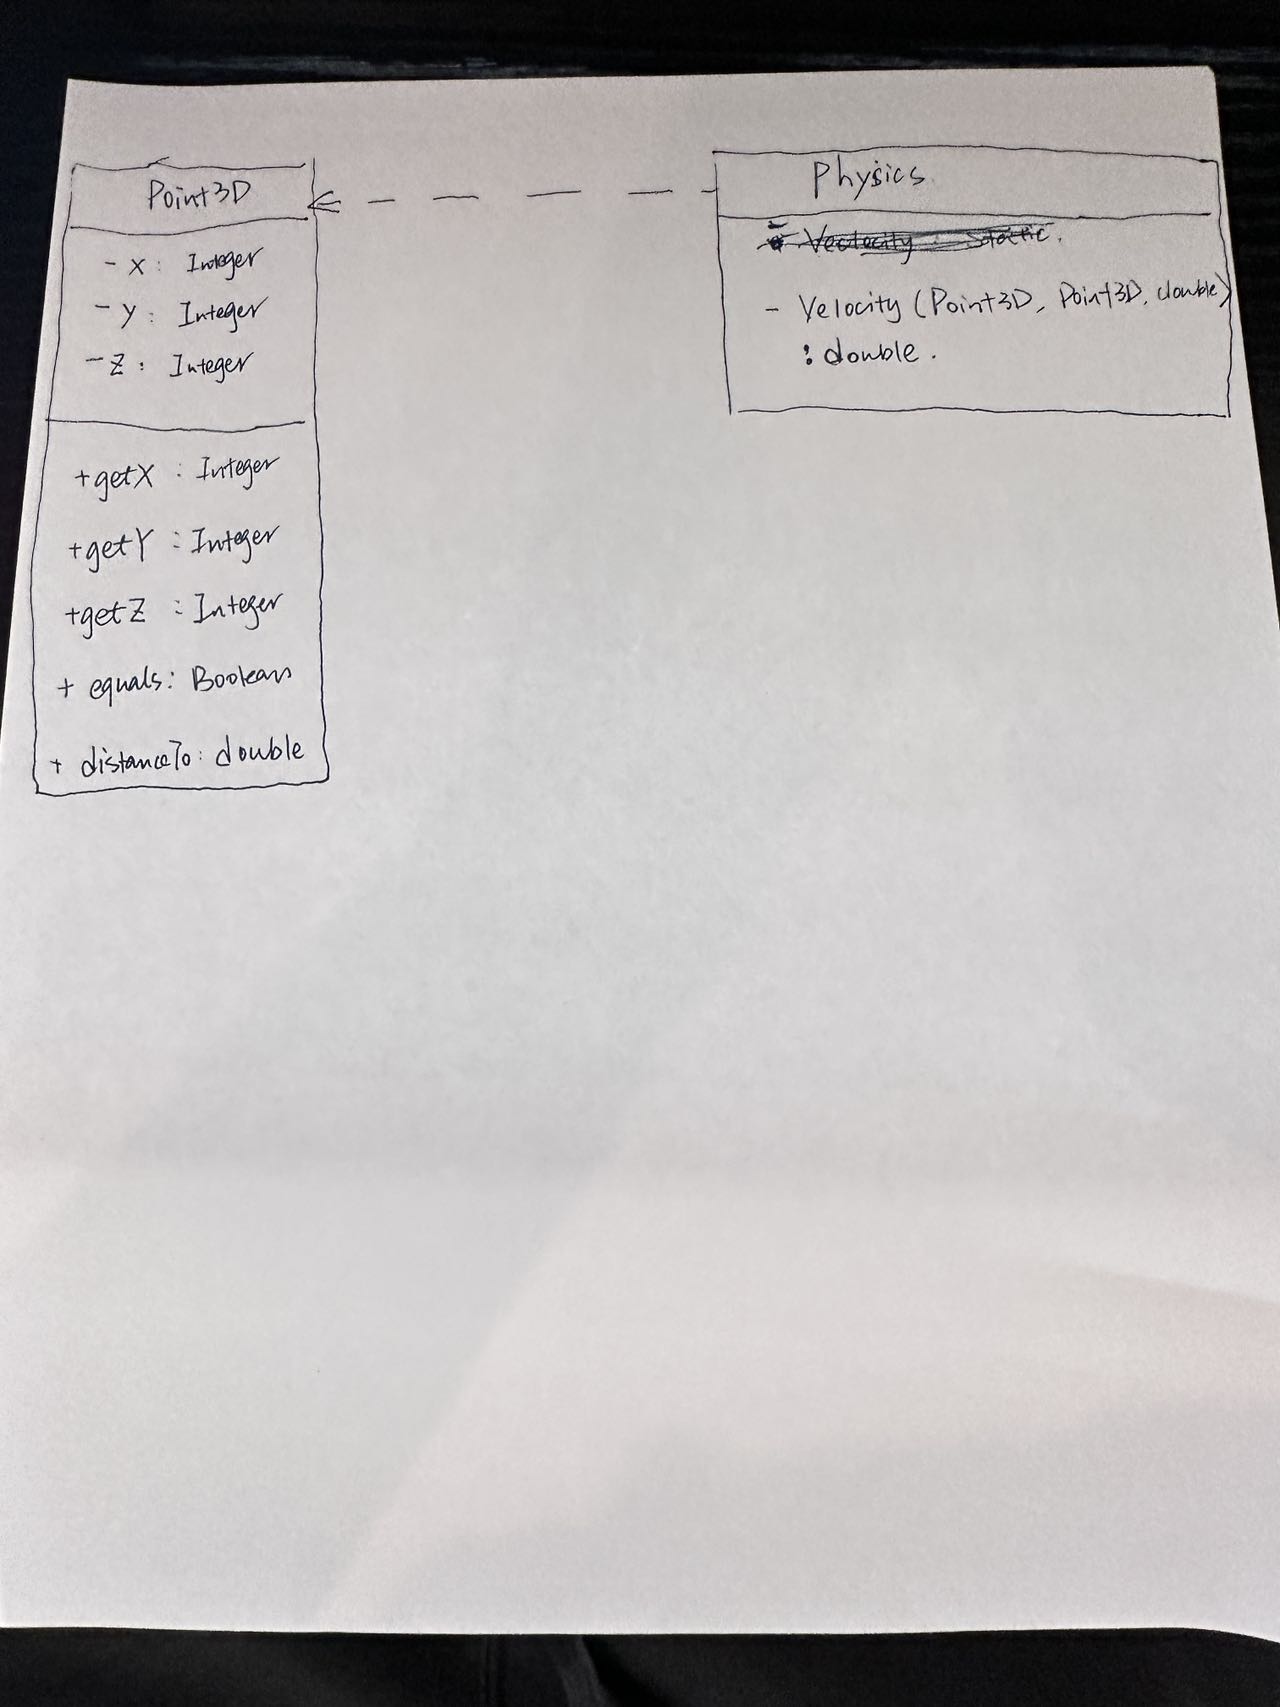 Point3D
- X : Integer
- Y : Integer
- Z : Integer
+ getX : Integer
+ getY : Integer
+ getZ : Integer
+ equals : Boolean
+ distanceTo : double
Physics
- Velocity (Point3D, Point3D, double)
: double.